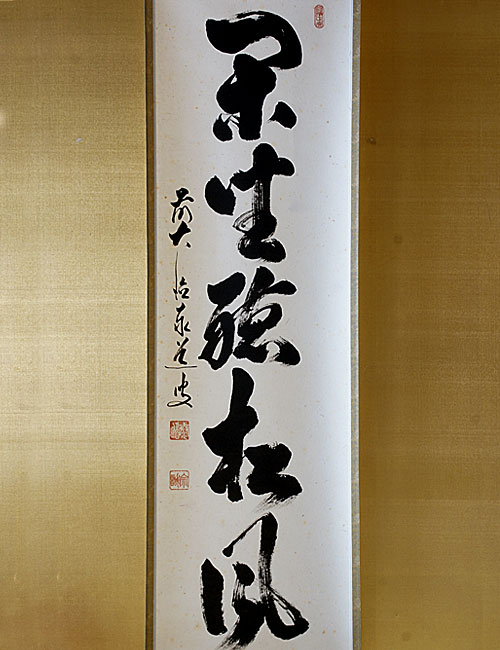 閑坐聴松風
前大徳